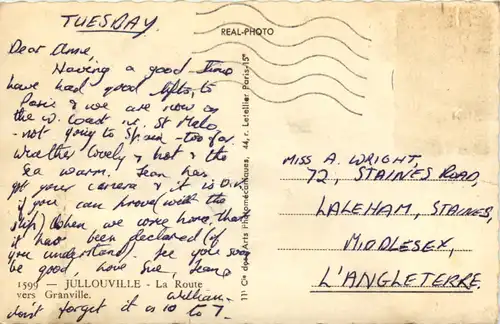 TUESDAY.
Dear Anne,
Having a good time
have had good lifts, to
Paris & we are now on
the W. Coast nr. St Malo
- not going to Spain - too far.
Weather lovely & hot & the
sea warm. Jean has
got your camera & it is O.K.
if you can prove (with the
slip) when we come home, that
it has been declared (if
you understand). See you soon
be good, love Sue, Jean
William.
don't forget it is 10 to 7.
1599 — JULLOUVILLE - La Route
vers Granville.
REAL-PHOTO
11 Cie des Arts Photomécaniques, 44, r. Letellier Paris-15e
MISS A. WRIGHT,
72, STAINES ROAD,
LALEHAM, STAINES,
MIDDLESEX,
L'ANGLETERRE.